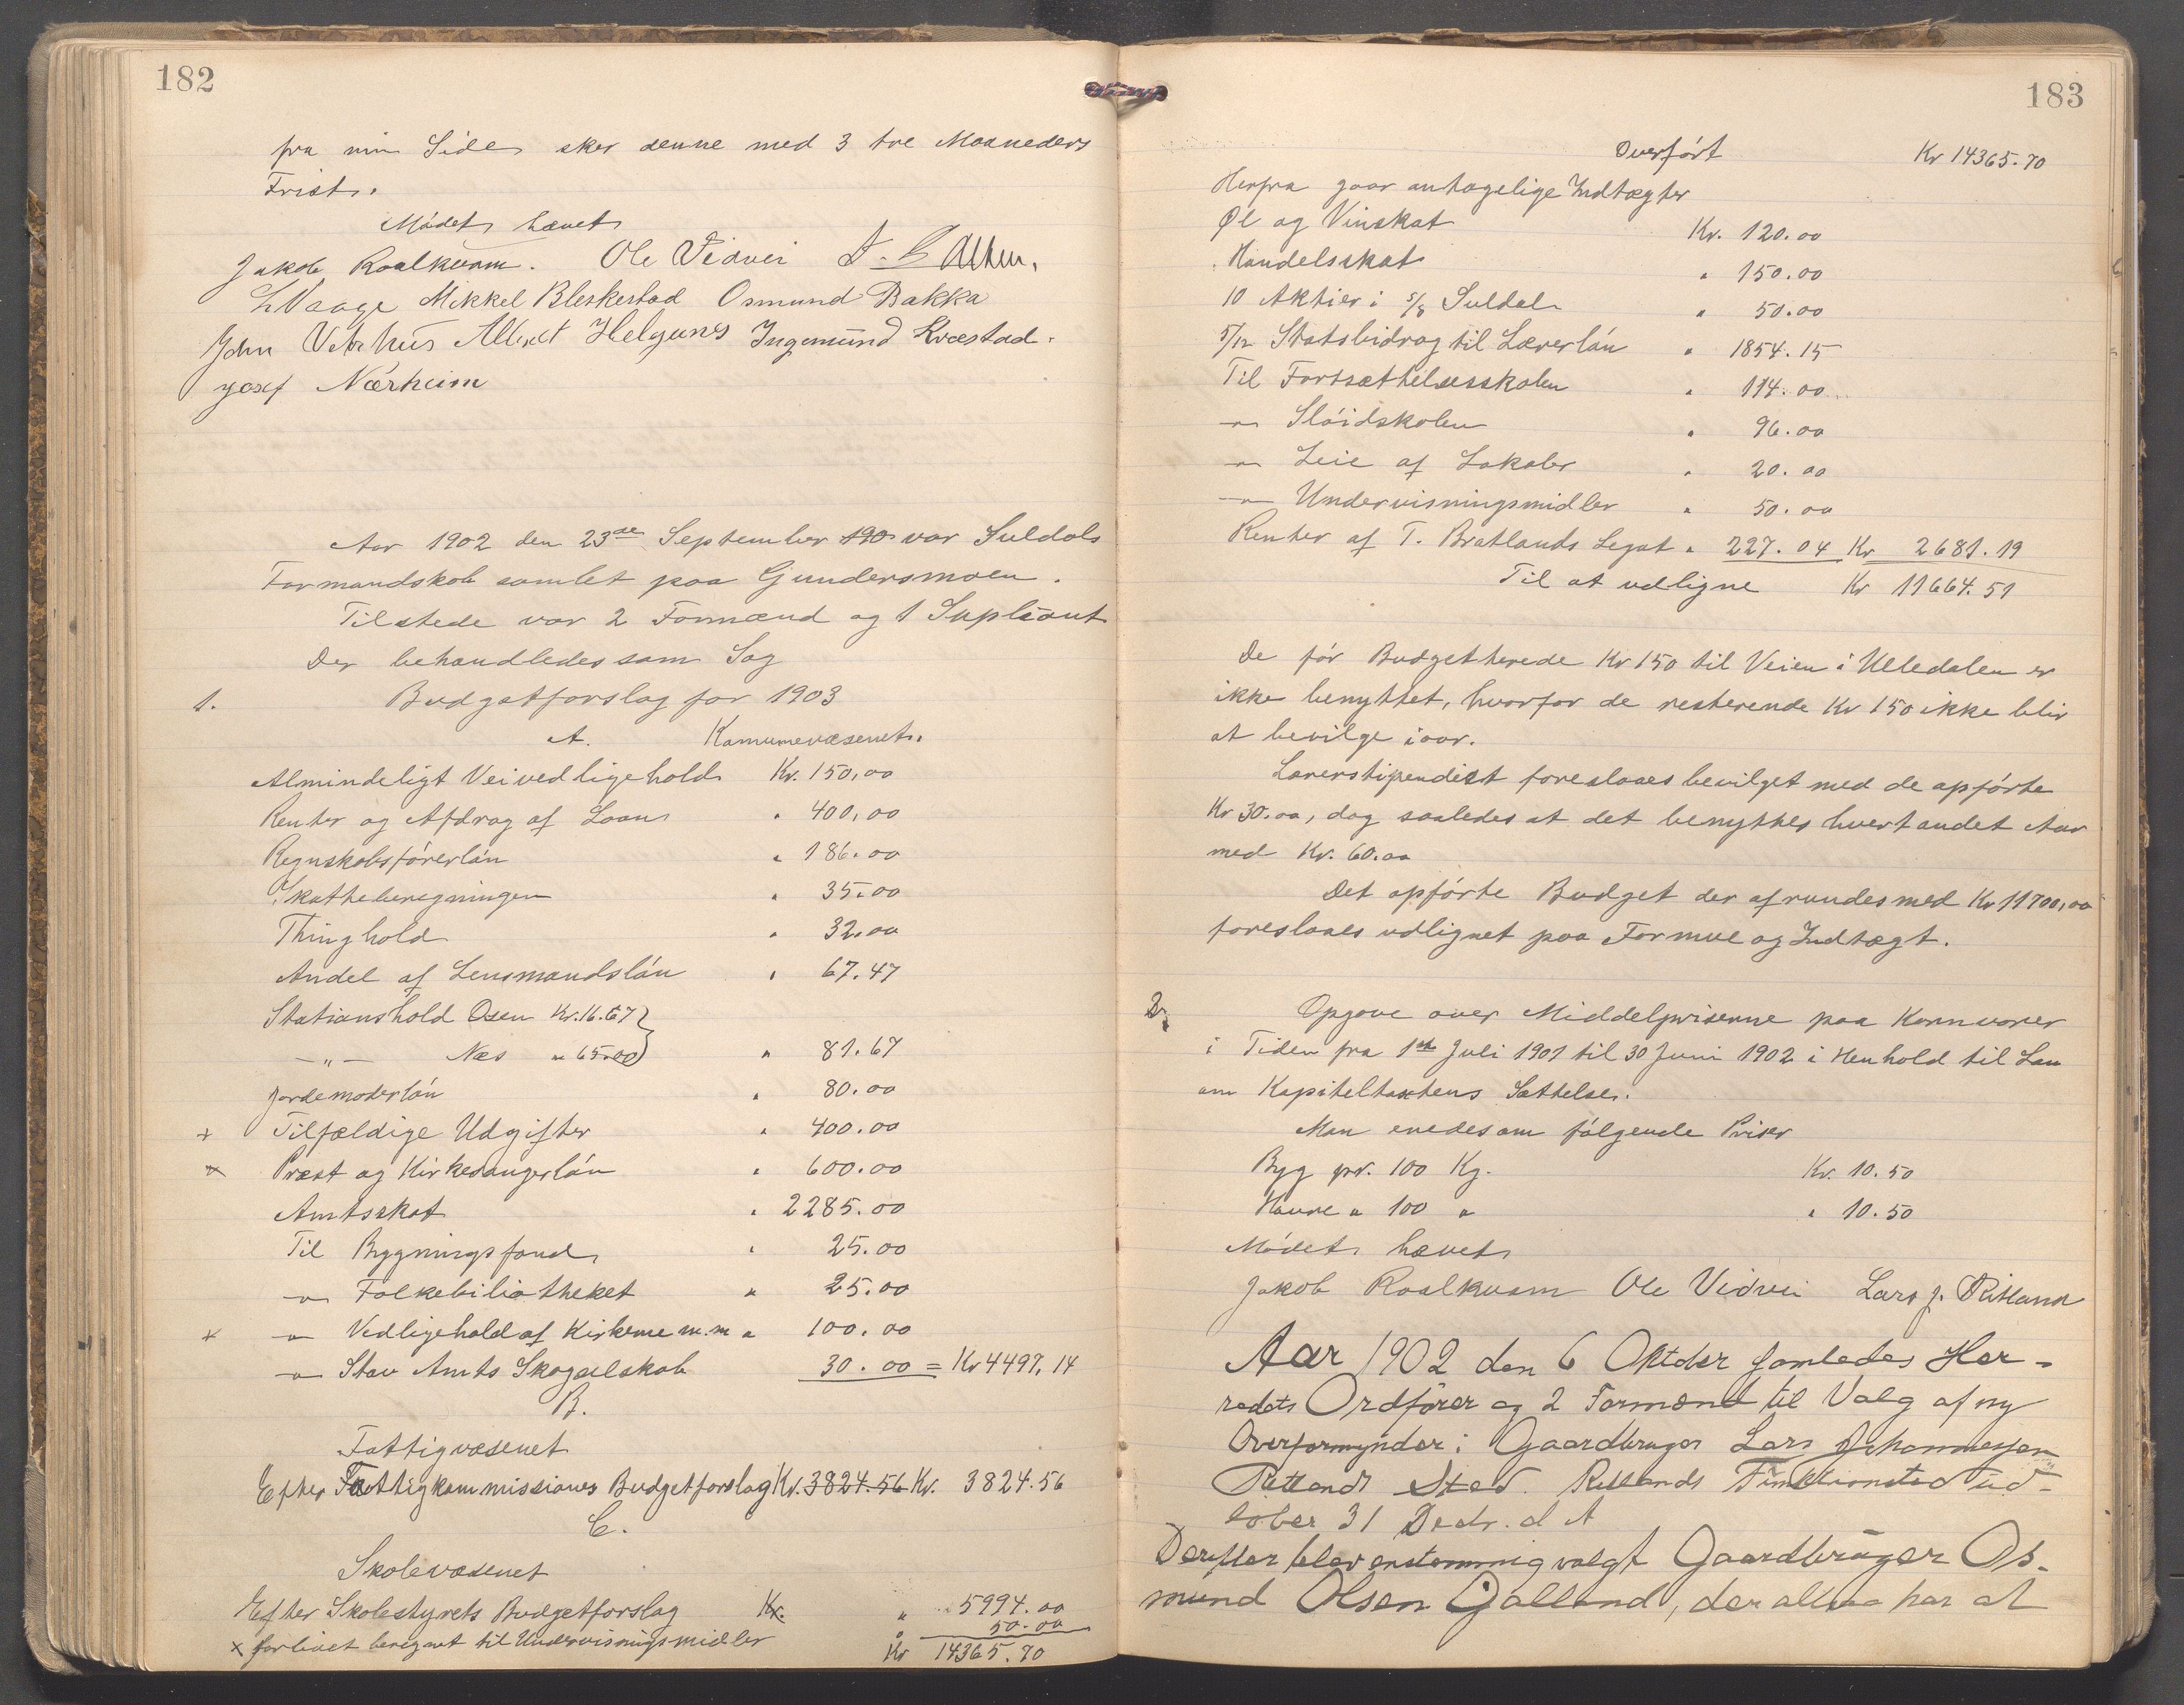 182
fra min Side, sker denne med 3 tre Maaneders
Frist.
Mødet hævet
Jakob Roalkvam. Ole Vidvei
L Vaage Mikkel Bleskestad Osmund Bakka
John Vetrhus Albret Helgenes Ingemund Kvæstad.
Josef Nærheim
Aar 1902 den 23de September 190 var Suldals
Formandskab samlet paa Gundersmoen.
Tilstede var 2 Formænd og 1 Supleant
Der behandledes som Sag
1. Budgetforslag for 1903
A. Komunevæsenet.
Almindeligt Veivedligehold Kr. 150,00
Renter og Afdrag af Laan " 400,00
Regnskabsførerløn " 186.00
Skatteberegningen " 35.00
Thinghold " 32.00
Andel af Lensmandsløn " 67.47
Stationshold Osen Kr. 16.67}
—"— Næs " 65.00} " 81.67
Jordemoderløn " 80.00
x Tilfældige Udgifter " 400.00
x Præst og Kirkesangerløn " 600.00
Amtsskat " 2285.00
Til Bygningsfond " 25.00
—"— Folkebiliotheket " 25.00
x —"— Vedligehold af Kirkerne m.m " 100.00
—"— Stav Amts Skogselskab 30.00 = Kr 4497,14
B.
Fattigvæsenet
Efter Fattigkommissiones Budgetforslag Kr. 3824.56 Kr. 3824.56
C.
Skolevæsenet
Efter Skolestyrets Budgetforslag Kr. " 5994.00
x forlivet beregnet til Undervisningsmidler " 50.00
Kr 14365.70
183
Overført Kr 14365.70
Herfra gaar antagelige Indtægter
Øl og Vinskat Kr. 120.00
Handelsskat " 150.00
10 Aktier i S/S Suldal " 50.00
5/12 Statsbidrag til Lærerløn " 1854.15
Til Fortsættelsesskolen " 114.00
—"— Sløidskolen " 96.00
—"— Leie af Lokaler " 20.00
—"— Undervisningsmidler " 50.00
Renter af T. Bratlands Legat " 227.04 Kr 2681.19
Til at udligne Kr 11664.51
De før Budgetterede Kr 150 til Veien i Ulledalen er
ikke benyttet, hvorfor de resterende Kr 150 ikke blir
at bevilge iaar.
Lærerstipendiet foreslaaes bevilget med de opførte
Kr 30.00, dog saaledes at det benyttes hvert andet Aar
med Kr. 60.00
Det opførte Budget der afrundes med Kr 11700,00
foreslaaes udlignet paa Formue og Indtægt.
2, Opgave over Middelpriserne paa Kornvarer
i Tiden fra 1ste Juli 1901 til 30 Juni 1902 i Henhold til Lov
om Kapiteltaxtens Sættelse.
Man enedes om følgende Priser
Byg pr. 100 Kg. Kr. 10.50
Havre " 100 " " 10.50
Mødet hævet
Jakob Roalkvam Ole Vidvei Lars J. Ritland
Aar 1902 den 6 Oktober samledes Her-
redets Ordfører og 2 Formænd til Valg af ny
Overformynder i Gaardbruger Lars Johannessen
Ritlands Sted. Ritlands Funktionstid ud-
løber 31 Decbr. d A
Derefter blev enstemmig valgt Gaardbruger Os-
mund Olsen Gjalland, der altsaa har at